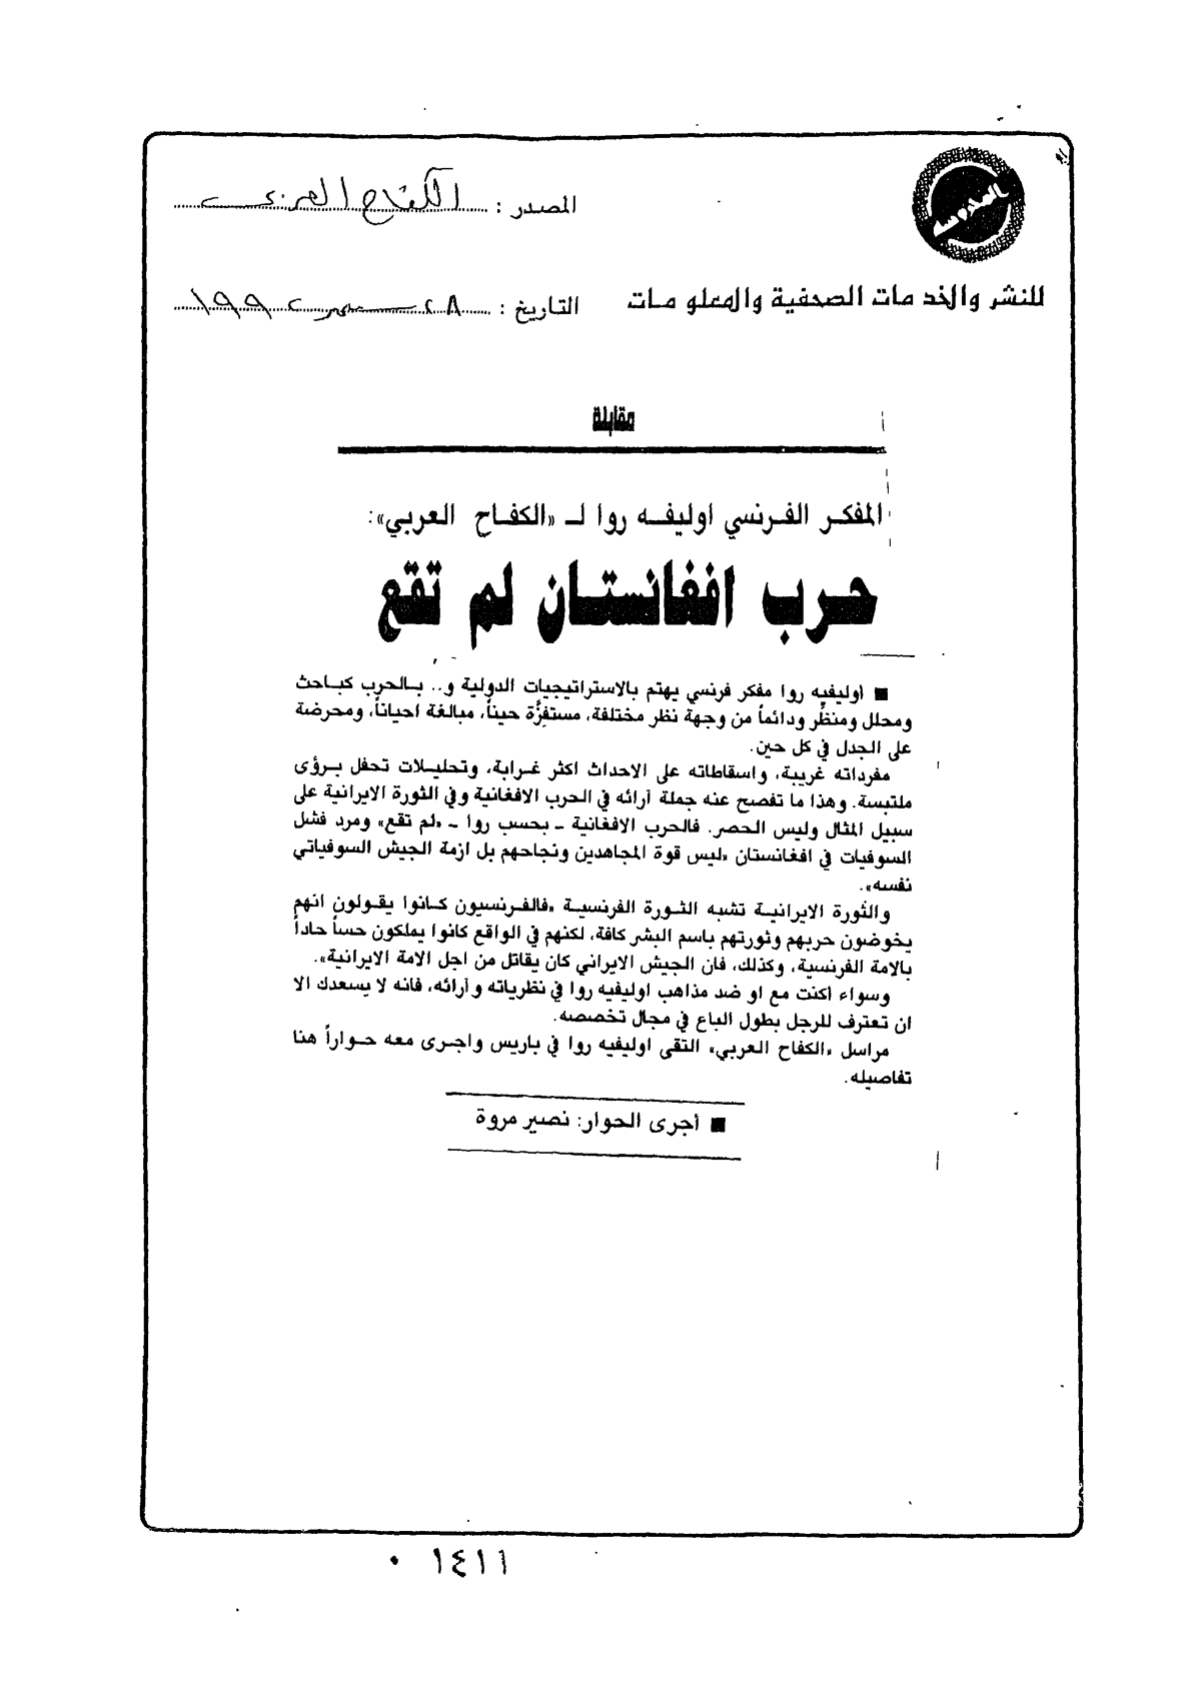 المصدر : الكفاح العربي
للنشر والخدمات الصحفية والمعلومات
التاريخ : ٢٨ ديسمبر ١٩٩٢
مقابلة
المفكر الفرنسي اوليفه روا لـ «الكفاح العربي»:
حرب افغانستان لم تقع
■ اوليفيه روا مفكر فرنسي يهتم بالاستراتيجيات الدولية و.. بالحرب كباحث
ومحلل ومنظّر ودائماً من وجهة نظر مختلفة، مستفزَّة حيناً، مبالغة احياناً، ومحرضة
على الجدل في كل حين.
مفرداته غريبة، واسقاطاته على الاحداث اكثر غرابة، وتحليلات تحفل برؤى
ملتبسة. وهذا ما تفصح عنه جملة آرائه في الحرب الافغانية وفي الثورة الايرانية على
سبيل المثال وليس الحصر. فالحرب الافغانية ـ بحسب روا ـ «لم تقع» ومرد فشل
السوفيات في افغانستان «ليس قوة المجاهدين ونجاحهم بل ازمة الجيش السوفياتي
نفسه».
والثورة الايرانية تشبه الثورة الفرنسية «فالفرنسيون كانوا يقولون انهم
يخوضون حربهم وثورتهم باسم البشر كافة، لكنهم في الواقع كانوا يملكون حساً حاداً
بالامة الفرنسية، وكذلك، فان الجيش الايراني كان يقاتل من اجل الامة الايرانية».
وسواء أكنت مع او ضد مذاهب اوليفيه روا في نظرياته وآرائه، فانه لا يسعدك الا
ان تعترف للرجل بطول الباع في مجال تخصصه.
مراسل «الكفاح العربي» التقى اوليفيه روا في باريس واجرى معه حواراً هنا
تفاصيله.
■ أجرى الحوار: نصير مروة
١٤١١ ٠